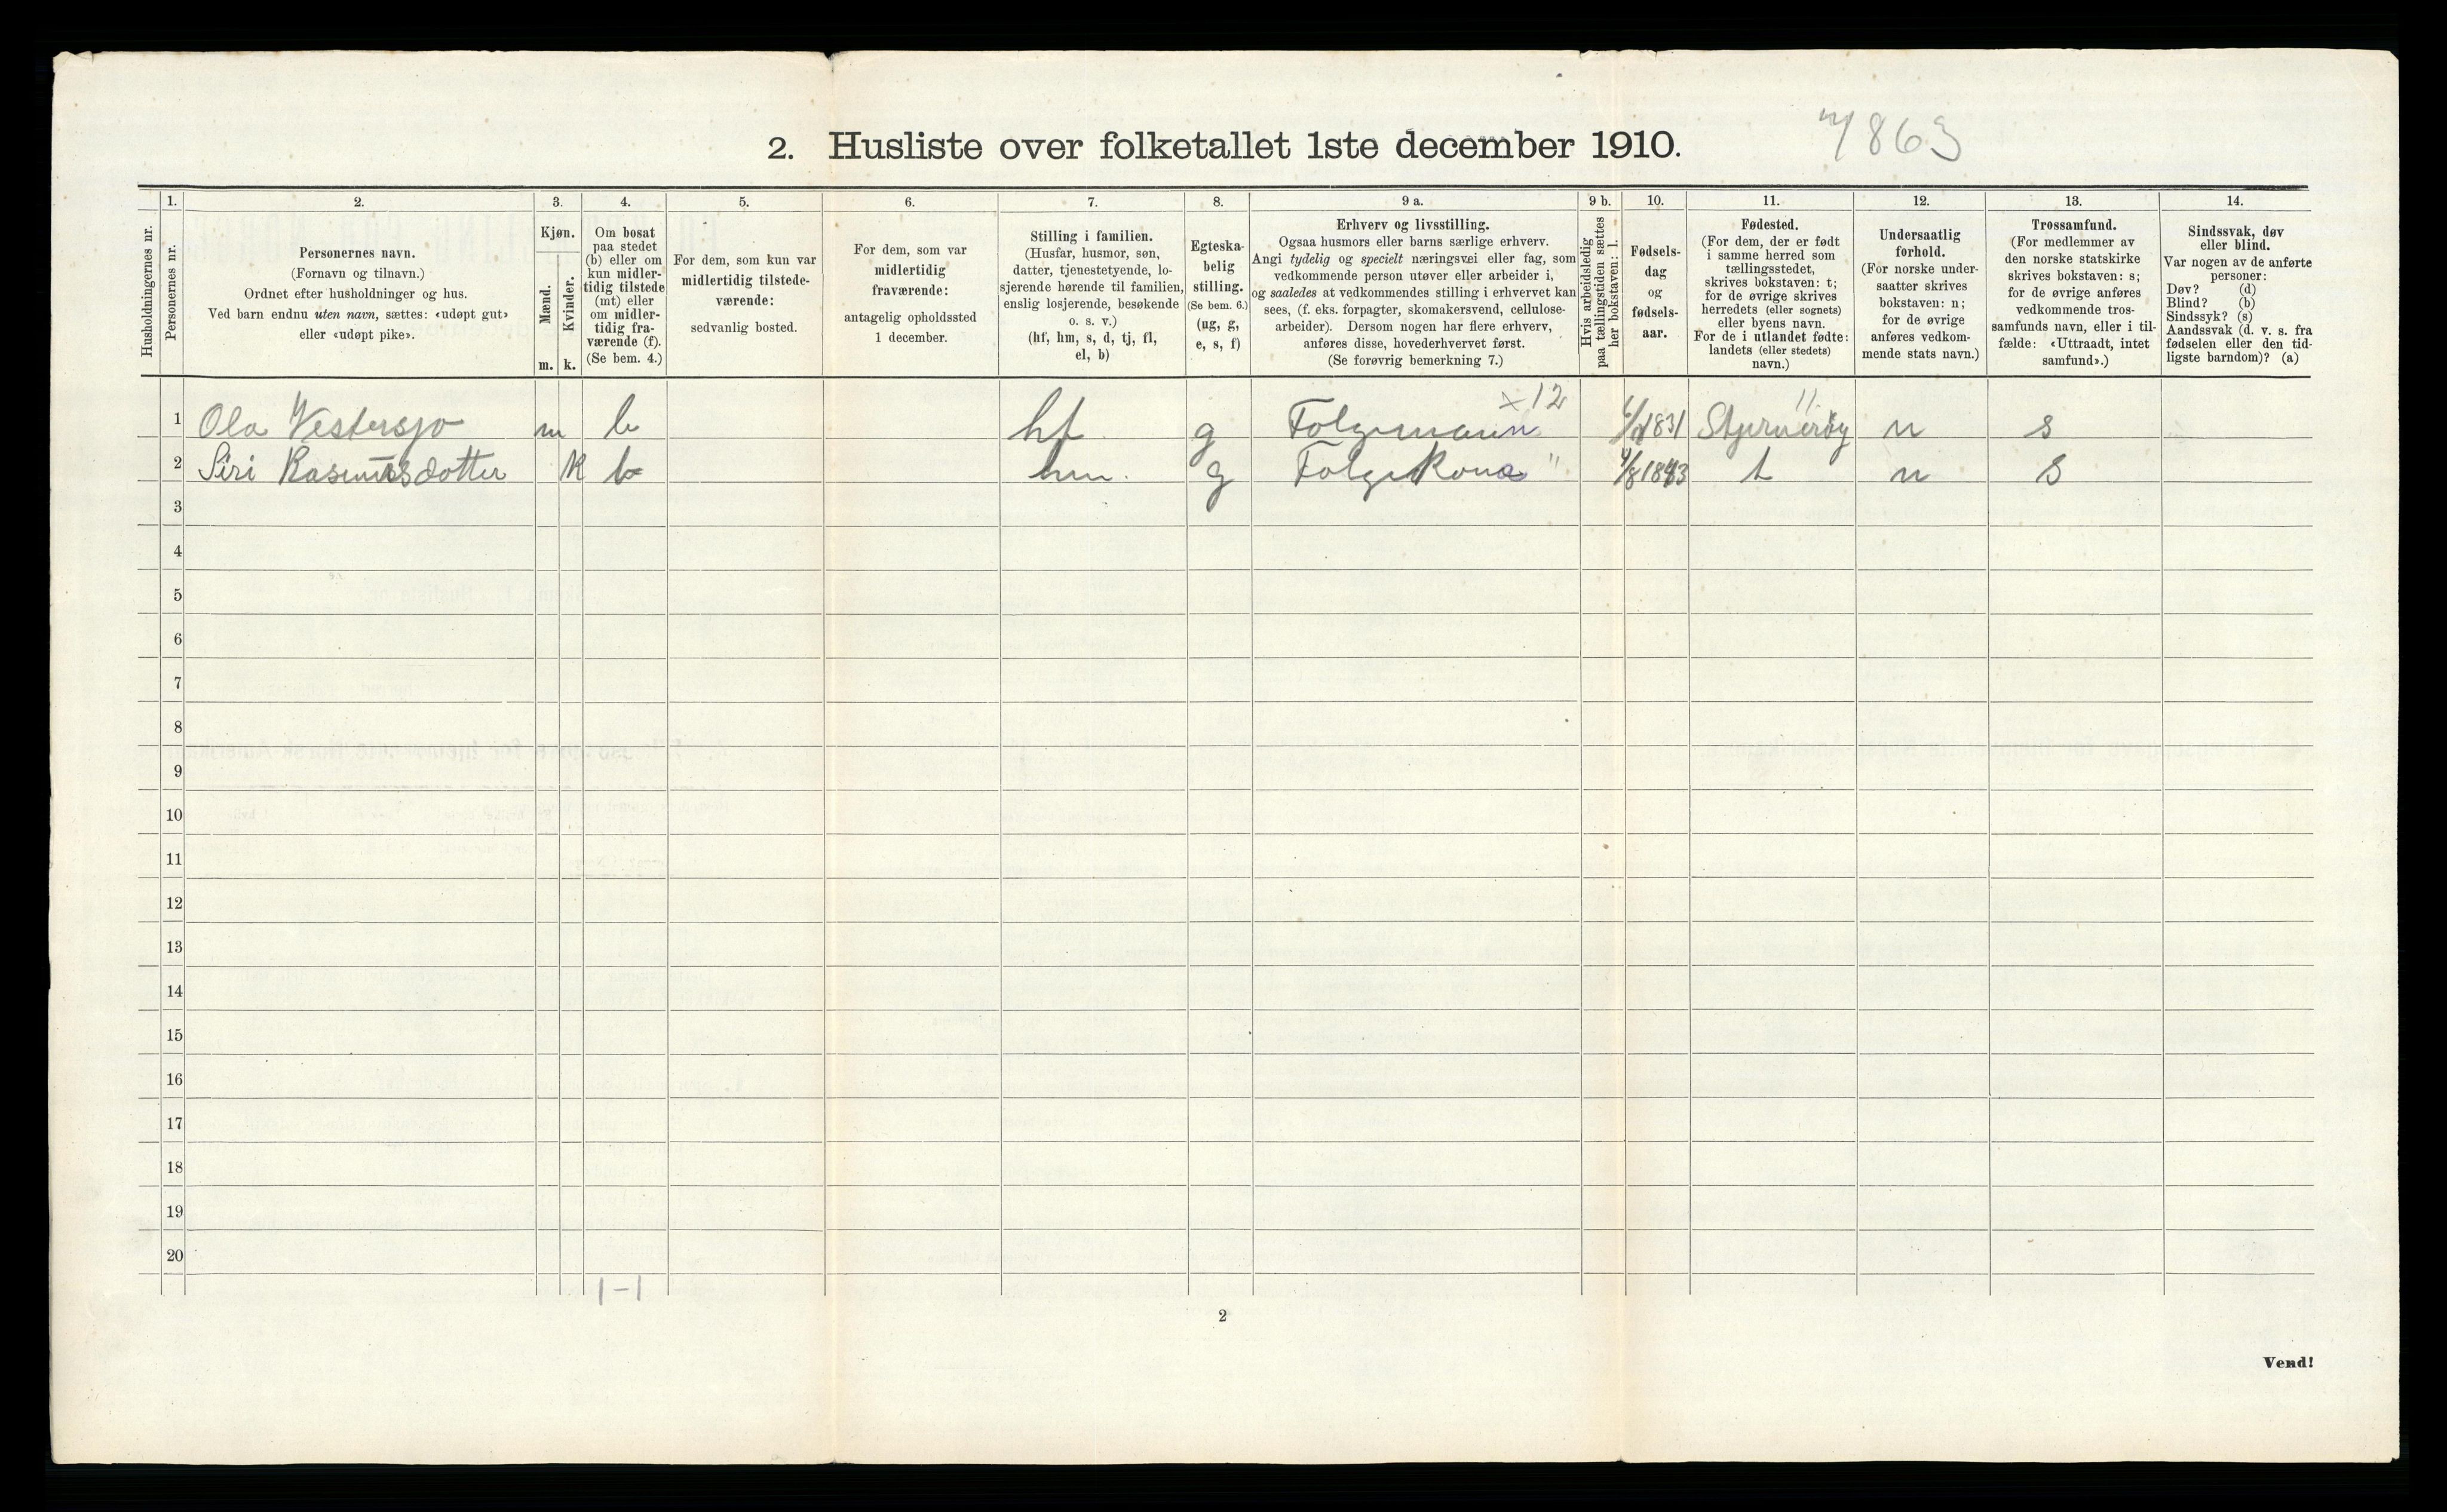 7863
2. Husliste over folketallet 1ste december 1910.
Husholdningernes nr.
1.
Personernes nr.
2.
Personernes navn.
(Fornavn og tilnavn.)
Ordnet efter husholdninger og hus.
Ved barn endnu uten navn, sættes: «udøpt gut»
eller «udøpt pike».
3.
Kjøn.
Mænd.
Kvinder.
m. k.
4.
Om bosat
paa stedet
(b) eller om
kun midler-
tidig tilstede
(mt) eller
om midler-
tidig fra-
værende (f).
(Se bem. 4.)
5.
For dem, som kun var
midlertidig tilstede-
værende:
sedvanlig bosted.
6.
For dem, som var
midlertidig
fraværende:
antagelig opholdssted
1 december.
7.
Stilling i familien.
(Husfar, husmor, søn,
datter, tjenestetyende, lo-
sjerende hørende til familien,
enslig losjerende, besøkende
o. s. v.)
(hf, hm, s, d, tj, fl,
el, b)
8.
Egteska-
belig
stilling.
(Se bem. 6.)
(ug, g,
e, s, f)
9 a.
Erhverv og livsstilling.
Ogsaa husmors eller barns særlige erhverv.
Angi tydelig og specielt næringsvei eller fag, som
vedkommende person utøver eller arbeider i,
og saaledes at vedkommendes stilling i erhvervet kan
sees, (f. eks. forpagter, skomakersvend, cellulose-
arbeider). Dersom nogen har flere erhverv,
anføres disse, hovederhvervet først.
(Se forøvrig bemerkning 7.)
9 b.
Hvis arbeidsledig
paa tællingstiden sættes
her bokstaven: l.
10.
Fødsels-
dag
og
fødsels-
aar.
11.
Fødested.
(For dem, der er født
i samme herred som
tællingsstedet,
skrives bokstaven: t;
for de øvrige skrives
herredets (eller sognets)
eller byens navn.
For de i utlandet fødte:
landets (eller stedets)
navn.)
12.
Undersaatlig
forhold.
(For norske under-
saatter skrives
bokstaven: n;
for de øvrige
anføres vedkom-
mende stats navn.)
13.
Trossamfund.
(For medlemmer av
den norske statskirke
skrives bokstaven: s;
for de øvrige anføres
vedkommende tros-
samfunds navn, eller i til-
fælde: «Uttraadt, intet
samfund».)
14.
Sindssvak, døv
eller blind.
Var nogen av de anførte
personer:
Døv? (d)
Blind? (b)
Sindssyk? (s)
Aandssvak (d. v. s. fra
fødselen eller den tid-
ligste barndom)? (a)
x 12 11
1 Ola Vestersjo m b hf g Folgemann 1831 n s
2 Siri Rasmusdotter k b hm. g Folgekona " 4/8 1843 t n s
3
4
5
6
7
8
9
10
11
12
13
14
15
16
17
18
19
20
1-1
2
Vend!